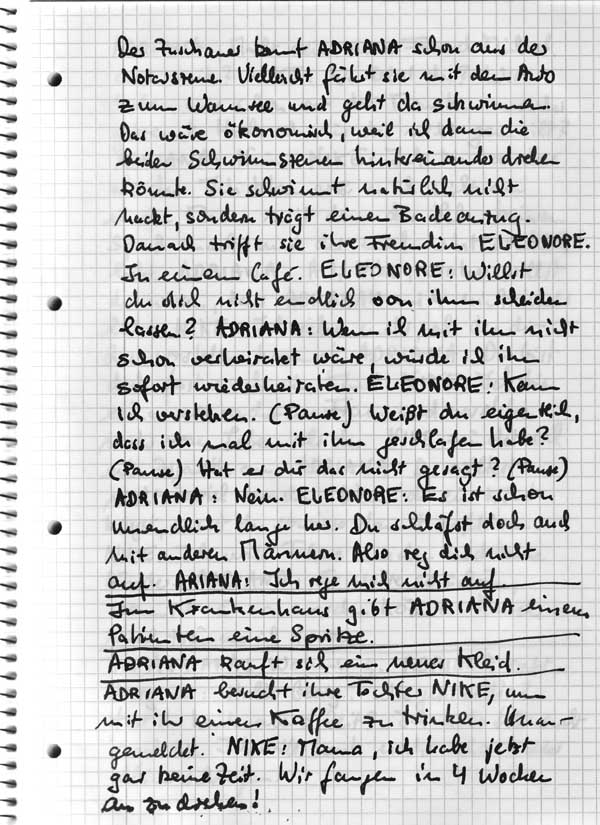 Der Zuschauer kennt ADRIANA schon aus der
Notarszene. Vielleicht fährt sie mit dem Auto
zum Wannsee und geht da schwimmen.
Das wäre ökonomisch, weil ich dann die
beiden Schwimmszenen hintereinander drehen
könnte. Sie schwimmt natürlich nicht
nackt, sondern trägt einen Badeanzug.
Danach trifft sie ihre Freundin ELEONORE.
In einem Café. ELEONORE: Willst
du dich nicht endlich von ihm scheiden
lassen? ADRIANA: Wenn ich mit ihm nicht
schon verheiratet wäre, würde ich ihn
sofort wiederheiraten. ELEONORE: Kann
ich verstehen. (Pause) Weißt du eigentlich,
dass ich mal mit ihm geschlafen habe?
(Pause) Hat er dir das nicht gesagt? (Pause)
ADRIANA: Nein. ELEONORE: Es ist schon
unendlich lange her. Du schläfst doch auch
mit anderen Männern. Also reg dich nicht
auf. ARIANA: Ich rege mich nicht auf.
Im Krankenhaus gibt ADRIANA einem
Patienten eine Spritze.
ADRIANA kauft sich ein neues Kleid.
ADRIANA besucht ihre Tochter NIKE, um
mit ihr einen Kaffee zu trinken. Unan-
gemeldet. NIKE: Mama, ich habe jetzt
gar keine Zeit. Wir fangen in 4 Wochen
an zu drehen!